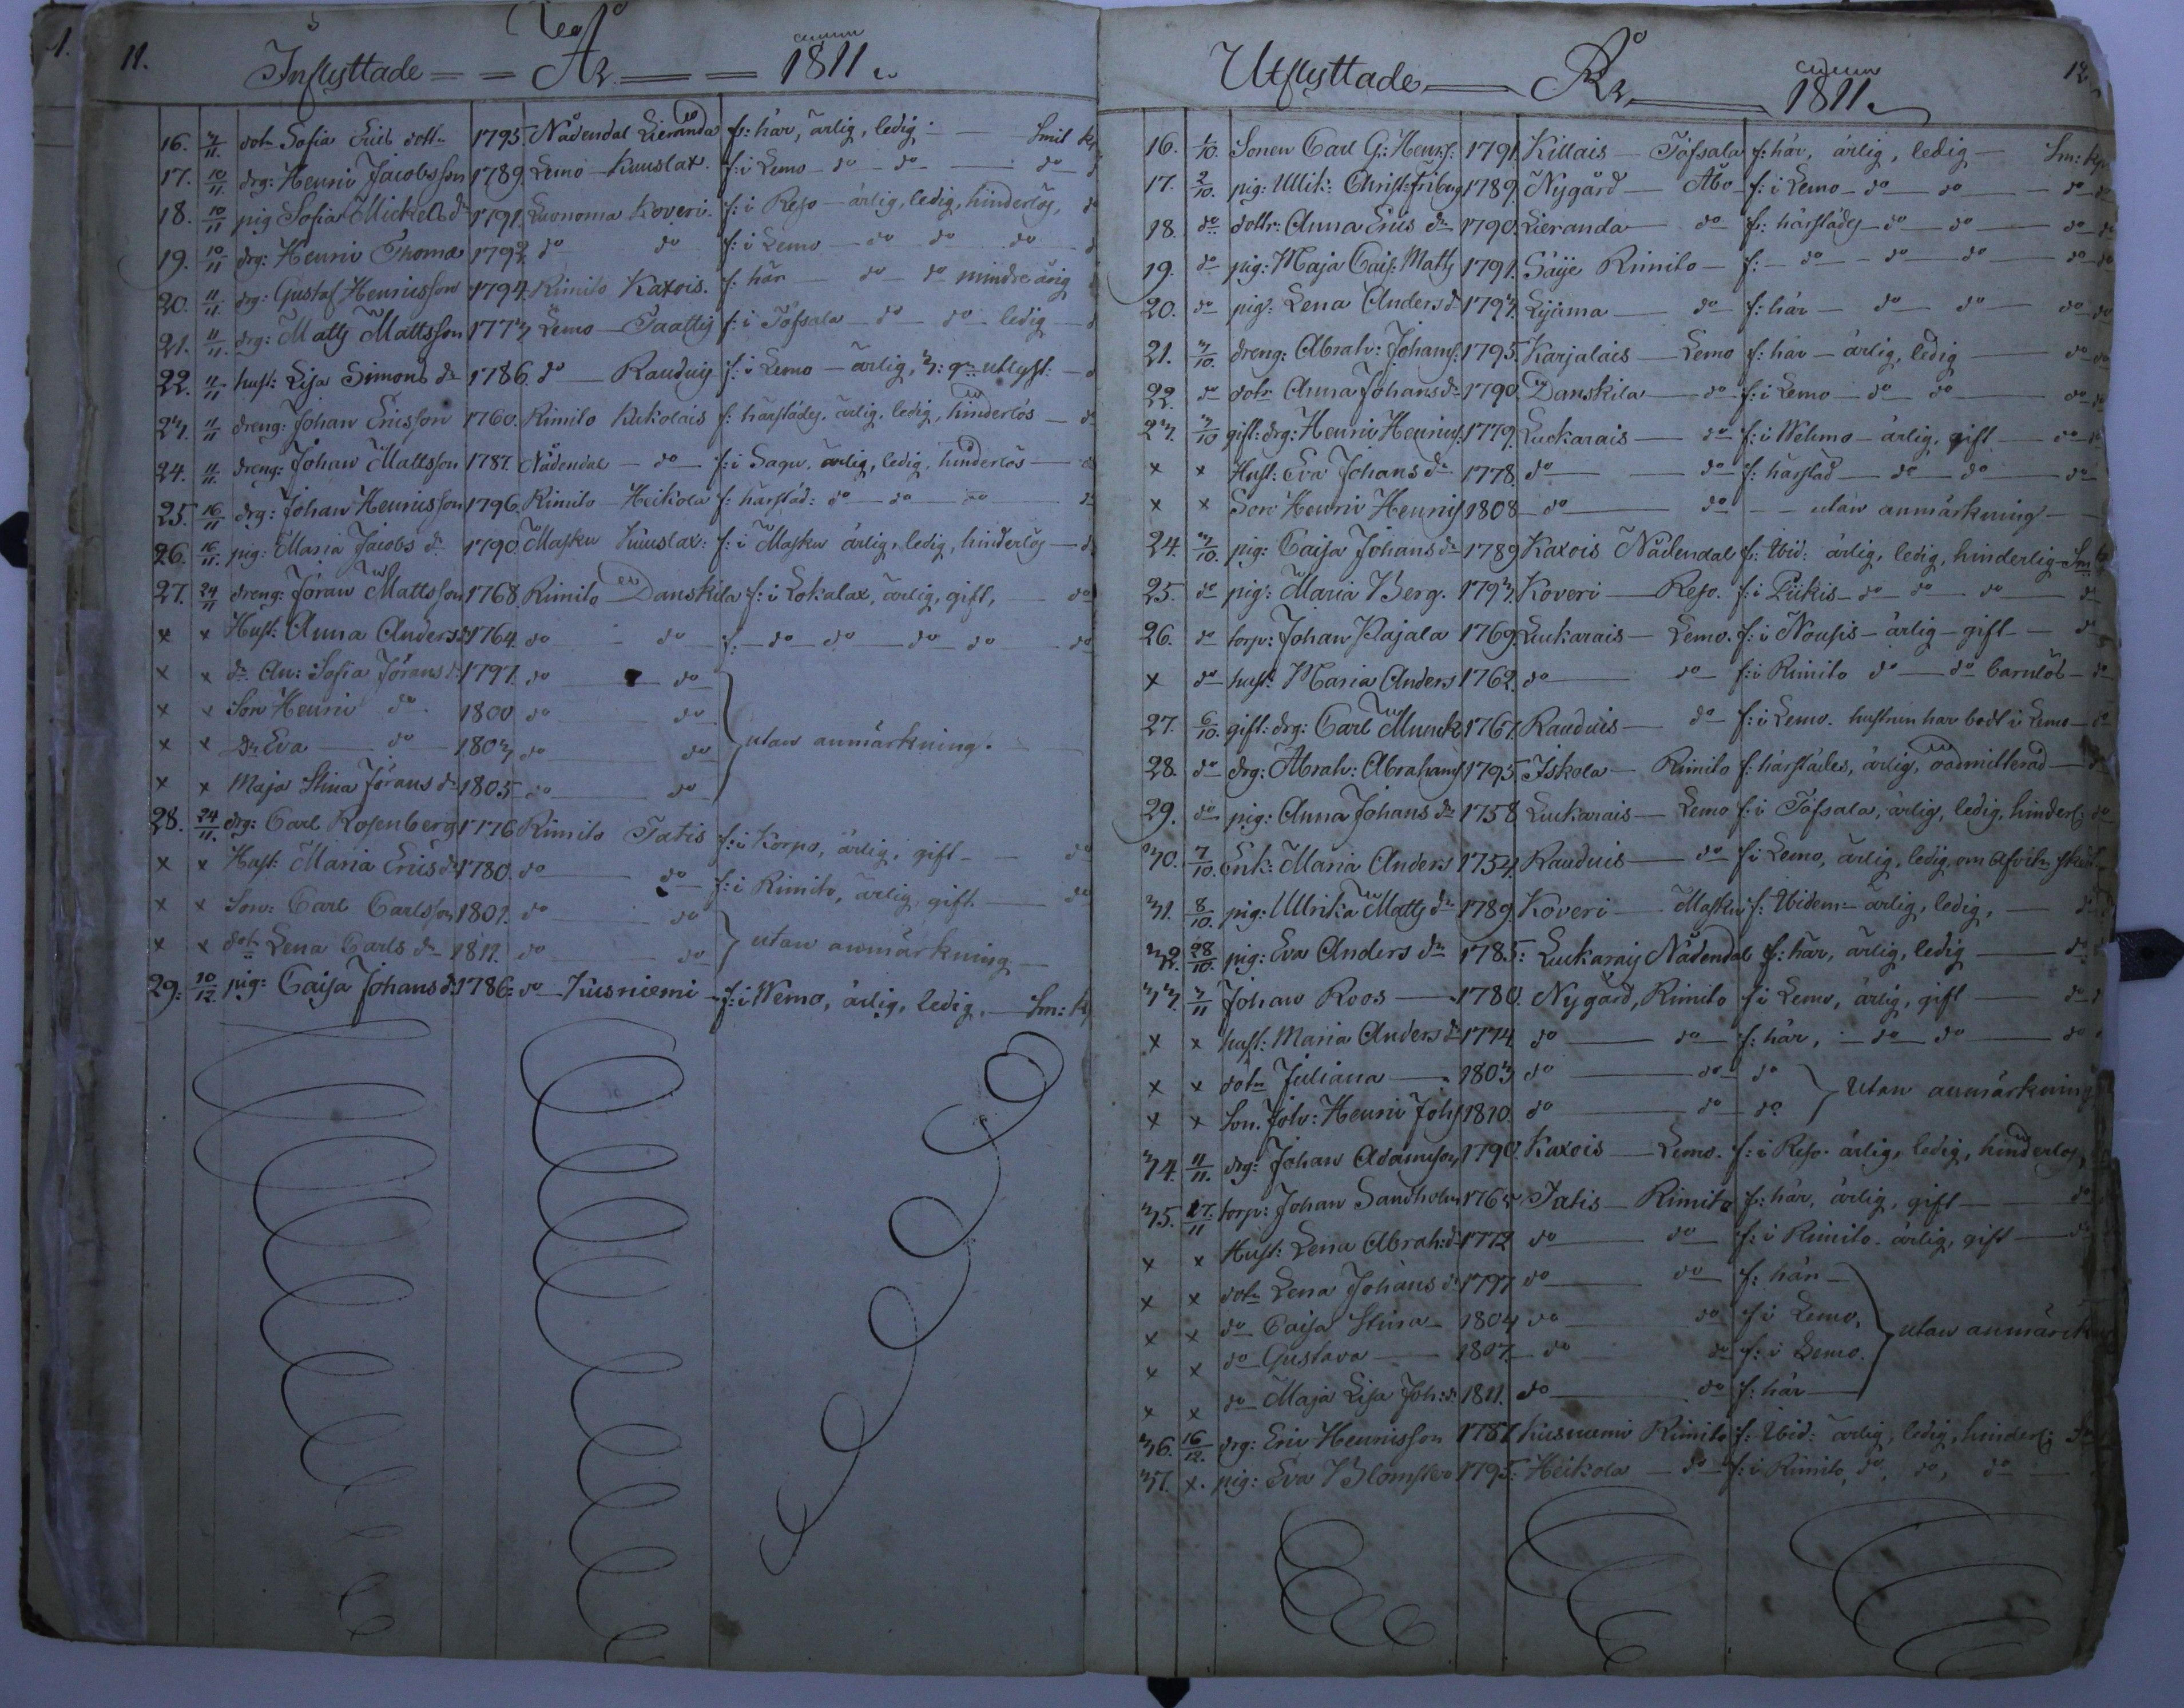 11.
Inflyttade År 1811.
16. 3/11. dotr Sofia Erics dottr 1795. Nådendal Lieranda f: här, ärlig, ledig Smit kp
17. 10/11. drg: Henric Jacobsson 1789. Lemo Kuuslax. f: i Lemo do do do
18. 10/11 pig Sofia Mickels dr 1791. Luonoma Koveri. f: i Reso ärlig, ledig, hinderlös, do
19. 10/11 drg: Henric Thomæ 1792 do do f: i Lemo do do do
20. 11/11. drg: Gustaf Henricsson 1794. Rimito Kaxois. f. här do do mindreårig
21. 11/11. drg: Matts Mattsson 1773 Lemo Taattis f: i Töfsala do do ledig
22. 11/11 hust: Lisa Simons dr 1786. do Rauduis f: i Lemo ärlig, 3: gr: utlyst:
23. 11/11 dreng: Johan Ericsson 1760. Rimito Kukolais f: härstädes, ärlig, ledig, hinderlös do
24. 11/11. dreng: Johan Mattsson 1787. Nådendal do f: i Sagu, ärlig, ledig, hinderlös do
25. 16/11 drg: Johan Henricsson 1796. Rimito Heikola f: härstäd: do do do do
26. 16/11. pig: Maria Jacobs dr 1790. Masku Kuuslax: f: i Masku ärlig, ledig, hinderlös
27. 24/11 dreng: Jöran Mattsson 1768. Rimito Danskila f: i Lokalax, ärlig, gift, do
x x Hust: Anna Anders dr 1764. do do f: do do do do do
x x dr An: Sofia Jörans d: 1797. do do
x x Son Henric do 1800 do do
x x Dr Eva do 1803 do do utan anmärkning.
x x Maja Stina Jörans dr 1805 do do
28. 24/11. drg: Carl Rosenberg 1776 Rimito Tatis f: i Korpo, ärlig, gift do
x x Hust: Maria Erics dr 1780. do do f: i Rimito, ärlig, gift do
x x Son: Carl Carlsson 1801. do do
x x dotr Lena Carls dr 1811. do do utan anmärkning
29: 10/12. pig: Caisa Johans dr 1786: do Kusniemi f: i Wemo, ärlig, ledig. Sm: kp
12.
Utflyttade År 1811.
16. 1/10. Sonen Carl G: Henrs: 1791. Killais Töfsala f: här, ärlig, ledig Sm: kp.
17. 2/10. pig: Ullik: Christ: Friberg 1789. Nygård Åbo f: i Lemo do do do do
18. do dottr: Anna Erics dr 1790. Lieranda do f: härstädes do do do do
19. do pig: Maja Cais: Matts 1791. Säije Rimito f: do do do do do
20. do pig: Lena Anders d 1793. Lyärna do f: här do do do do
21. 3/10. dreng: Abrah: Johans: 1795. Karjalais Lemo f: här ärlig, ledig do do
22. do dotr Anna Johans dr 1790. Danskila do f: i Lemo do do do do
23. 3/10 gift: drg: Henric Henrics: 1779. Luckarais do f: i Wehmo ärlig, gift do do
x x Hust: Eva Johans dr 1778. do do f: härstäd do do do
x x Son Henric Henrics 1808 do do utan anmärkning
24. 3/10. pig: Caisa Johans dr 1789 Kaxois Nådendal f: Ibid: ärlig, ledig, hinderlig Sm
25. do pig: Maria Berg. 1793. Koveri Reso. f: i Piikis do do do do
26. do torp: Johan Pajala 1769. Luckarais Lemo. f: i Nousis ärlig gift do
x do hust: Maria Anders 1762. do do f: i Rimito do do barnlös do
27. 6/10. gift: drg: Carl Munck 1767. Rauduis do f: i Lemo. hustrun har bodt i Lemo do
28. do drg: Abrah: Abrahams 1795. Iskola Rimito f: härstädes, ärlig, oadmitterad do
29. do pig: Anna Johans dr 1758. Luckarais Lemo f: i Töfsala, ärlig, ledig, hinderl: do
30. 7/10. Enk: Maria Anders 1754. Rauduis do f: i Lemo, ärlig, ledig, om
31. 8/10. pig: Ullrika Matts dr 1789. Koveri Masku f: Ibidem ärlig, ledig, do
32. 28/10. pig: Eva Anders dr 1785: Luckarais Nådendal f: här, ärlig, ledig do
33. 3/11 Johan Roos 1780. Nygård, Rimito f: i Lemo, ärlig, gift do
x x hust: Maria Anders dr 1774 do do f: här, do do do
x x dotr Juliana 1803 do do do
x x Son. Joh: Henric Johs 1810. do do do Utan anmärkning
34. 11/11. drg: Johan Adamsson 1790. Kaxois Lemo. f: i Reso. ärlig, ledig, hinderlös,
35. 17/11 torp: Johan Sandholm 1765 Tatis Rimito f: här, ärlig, gift do
x x Hust: Lena Abrah: d 1772 do do f: i Rimito. ärlig, gift do
x x dotr Lena Johans d: 1797 do do f: här
x x do Caisa Stina 1804 do do f: i Lemo,
x x do Gustava 1807. do do f: i Lemo. utan anmärk
x x do Maja Lisa Joh: d: 1811. do do f: här
36. 16/12. drg: Eric Henricsson 1787 Kusniemi Rimito f: Ibid: ärlig, ledig, hinderl: do
37. x. pig: Eva Blomster 1795: Heikola do f: i Rimito, do, do, do